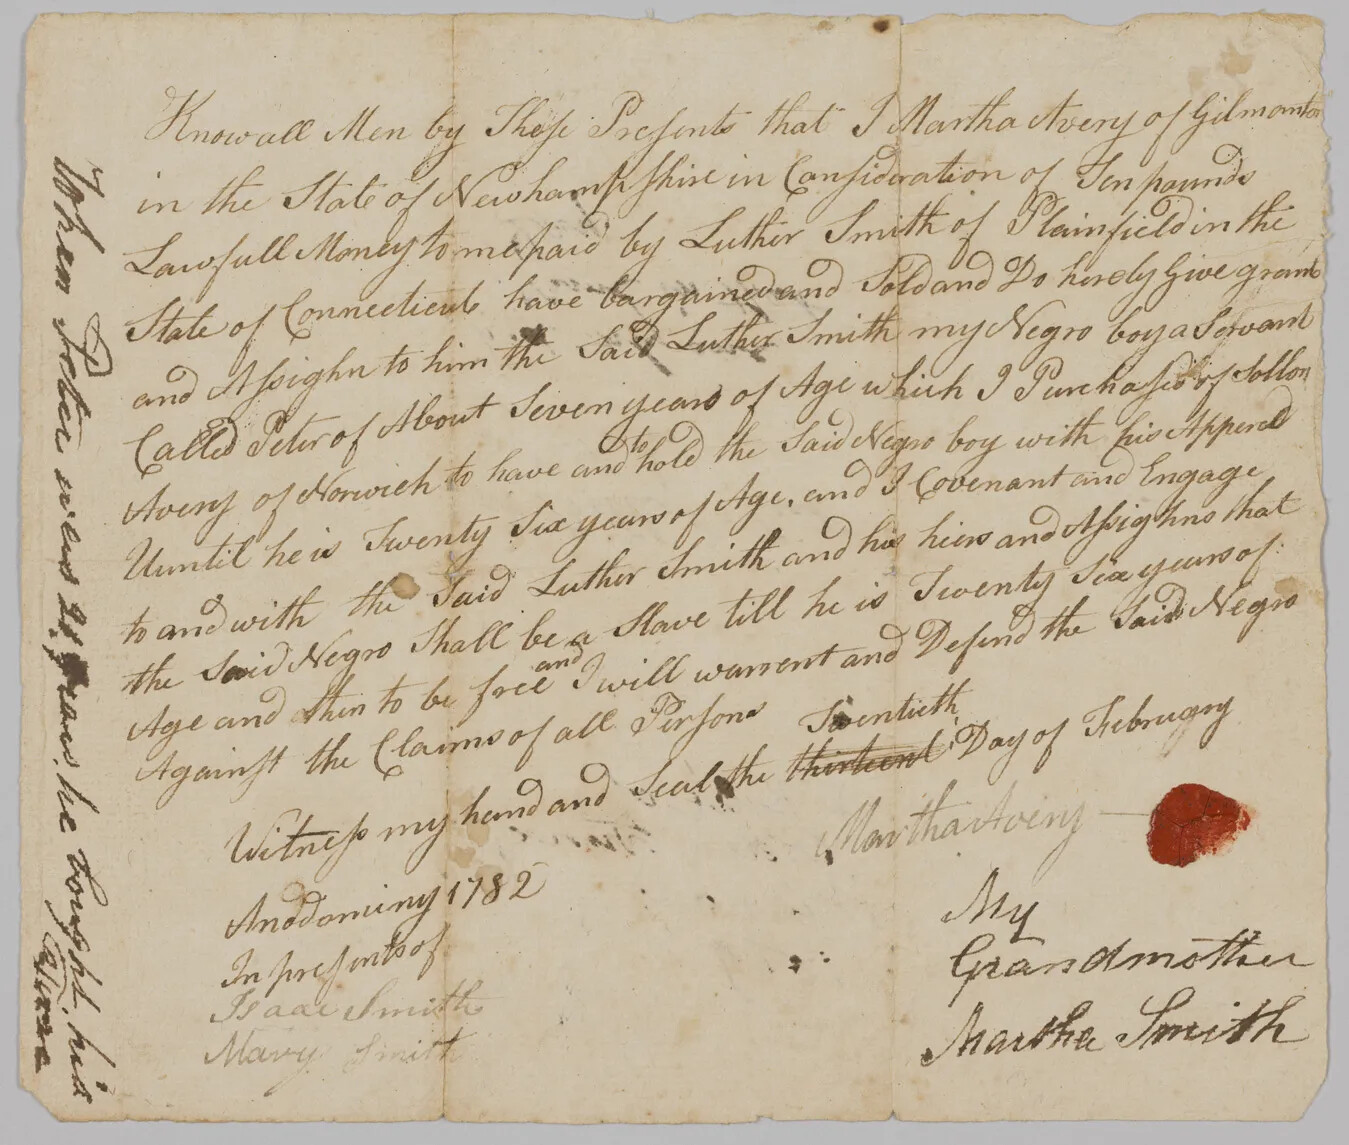 Know all Men by These Presents that I Martha Avery of Gilmanton
in the State of Newhampshire in Consideration of Ten pounds
Lawfull Money to me paid by Luther Smith of Plainfield in the
State of Connecticut have bargained and Sold and Do hereby Give grant
and Assighn to him the Said Luther Smith my Negro boy a Servant
Called Peter of About Seven years of Age which I Purchased of Sollon
Avery of Norwich to have and to hold the Said Negro boy with his Apperel
Uuntil he is Twenty Six years of Age, and I Covenant and Engage
to and with the Said Luther Smith and his heirs and Assighns that
the Said Negro Shall be a Slave till he is Twenty Six years of
Age and then to be free and I will warrent and Defend the Said Negro
Against the Claims of all Persons
Witness my hand and Seal the thirteent Twentieth Day of February
Anoddominy 1782
In presents of
Isaac Smith
Mary Smith
Martha Avery
My
Grandmother
Martha Smith
When Peter was 21 years he bought his
time